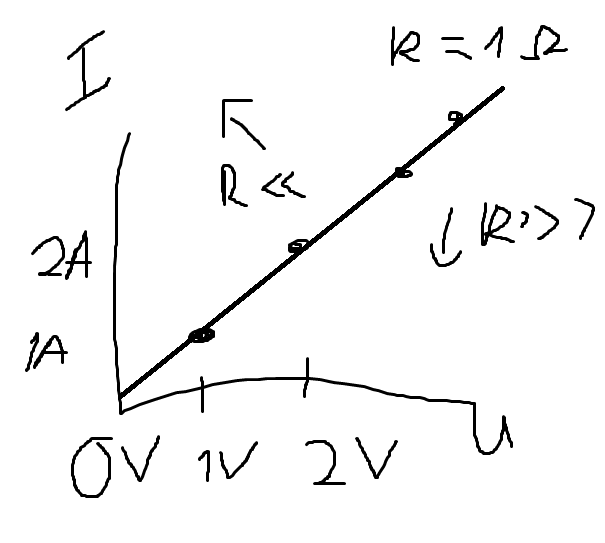 I
R = 1 Ω
R <<
↓ R >>
2A
1A
0V 1V 2V
U